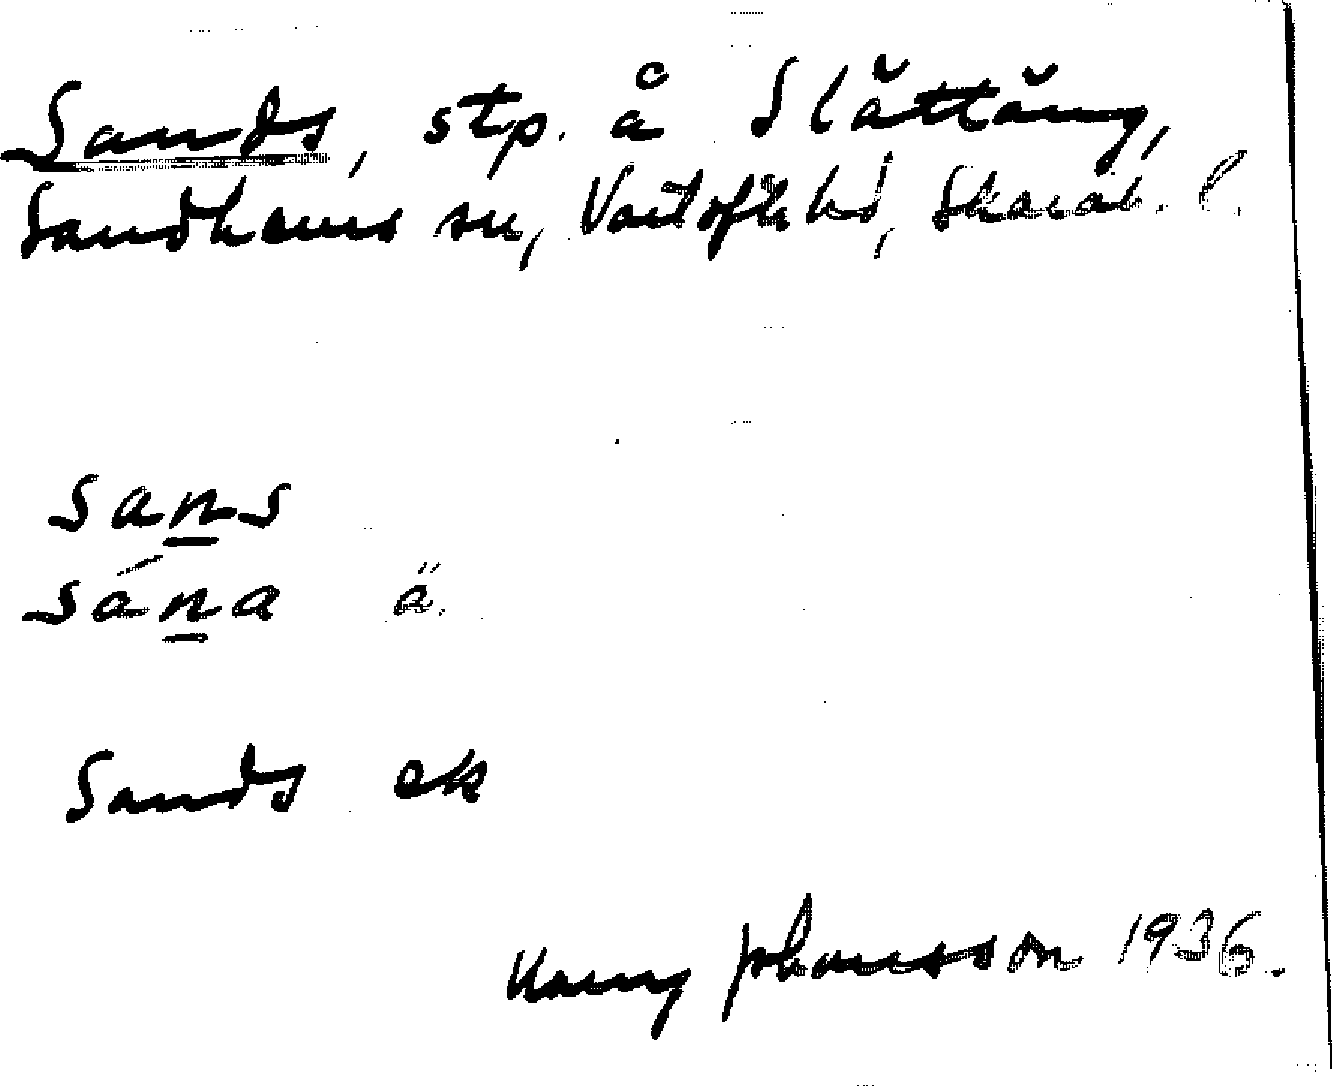 Sands, stp. å Slättäng,
Sandhems sn, Vartofta hd, Skarab. l.
sans
sána ä.
Sands ek
Harry Johansson 1936.